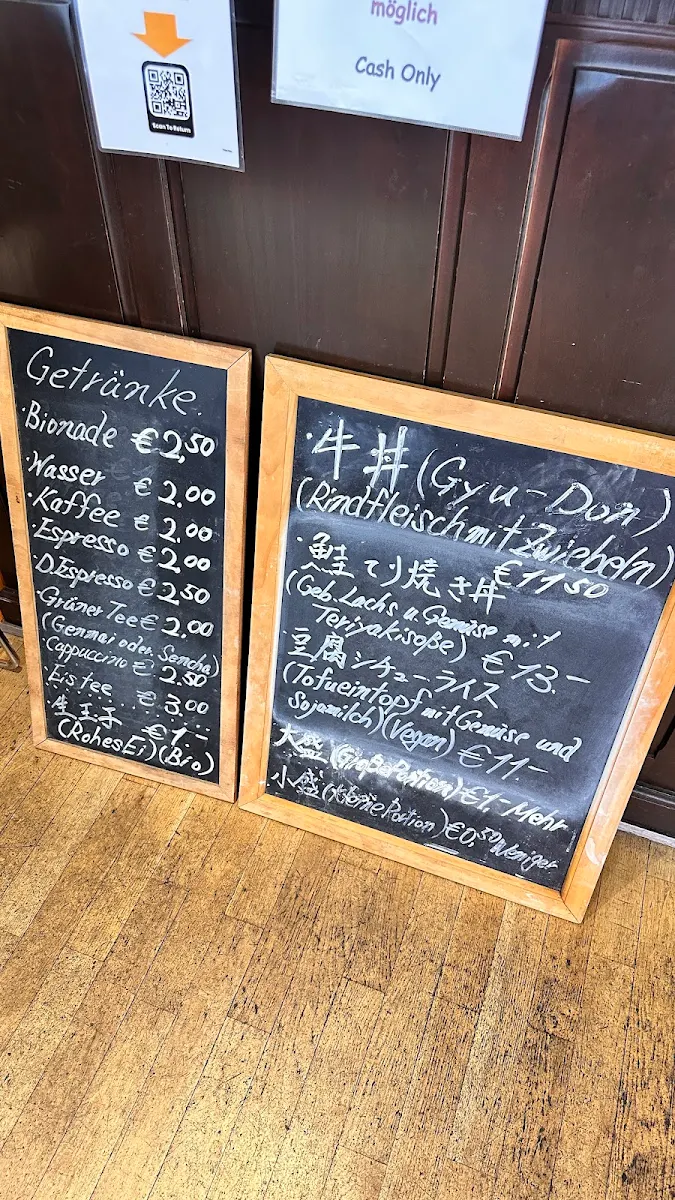 Scan To Return
möglich
Cash Only
Getränke.
·Bionade €2,50
·Wasser €2.00
·Kaffee €2.00
·Espresso €2.00
·D.Espresso €2.50
·Grüner Tee €2.00
(Genmai oder Sencha)
·Cappuccino €2.50
·Eistee €3.00
·生玉子 €1.-
(Rohes Ei) (Bio)
·牛丼 (Gyu-Don)
(Rindfleisch mit Zwiebeln)
€11.50
·鮭てり焼き丼
(Geb. Lachs u. Gemüse mit
Teriyakisoße) €13.-
·豆腐シチューライス
(Tofueintopf mit Gemüse und
Sojamilch) (Vegan) €11.-
大盛 (Große Portion) €1.- Mehr
小盛 (kleine Portion) €0,50 Weniger